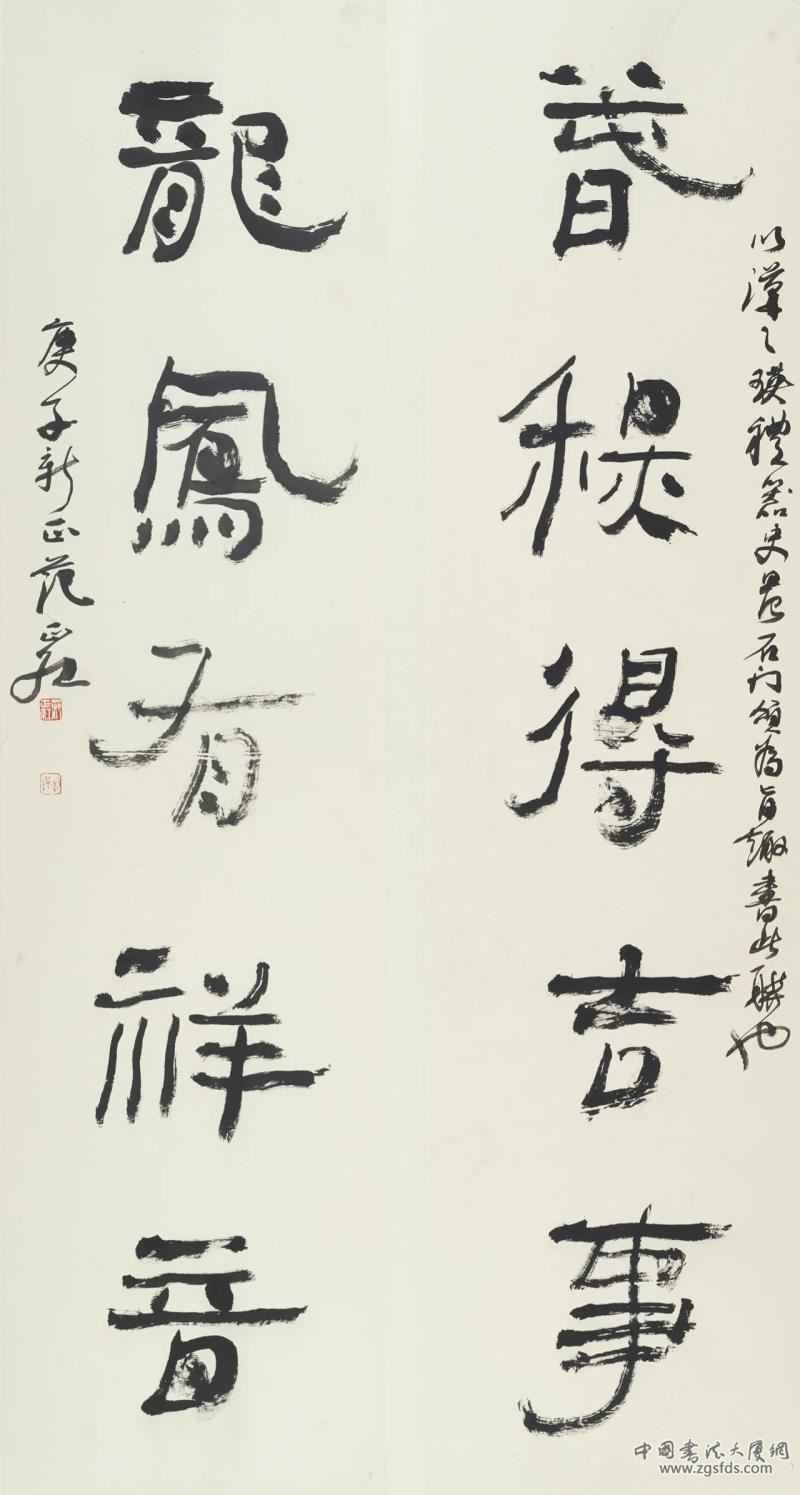 以漢乙瑛禮器史晨石門頌為旨趣書此聯也
春秋得吉事
龍鳳有祥音
庚子新正范
中國書法大廈網
www.zgsfds.com